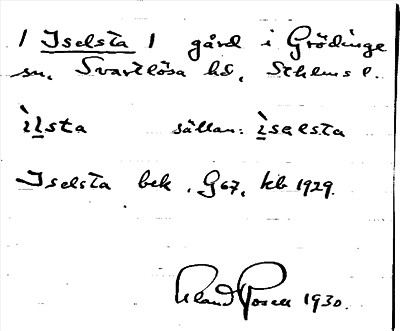 / Iselsta / gård i Grödinge
sn, Svartlösa hd, Sthlms l.
ìlsta sällan: ìselsta
Iselsta bek. G67, kb 1929.
Roland Rosell 1930.